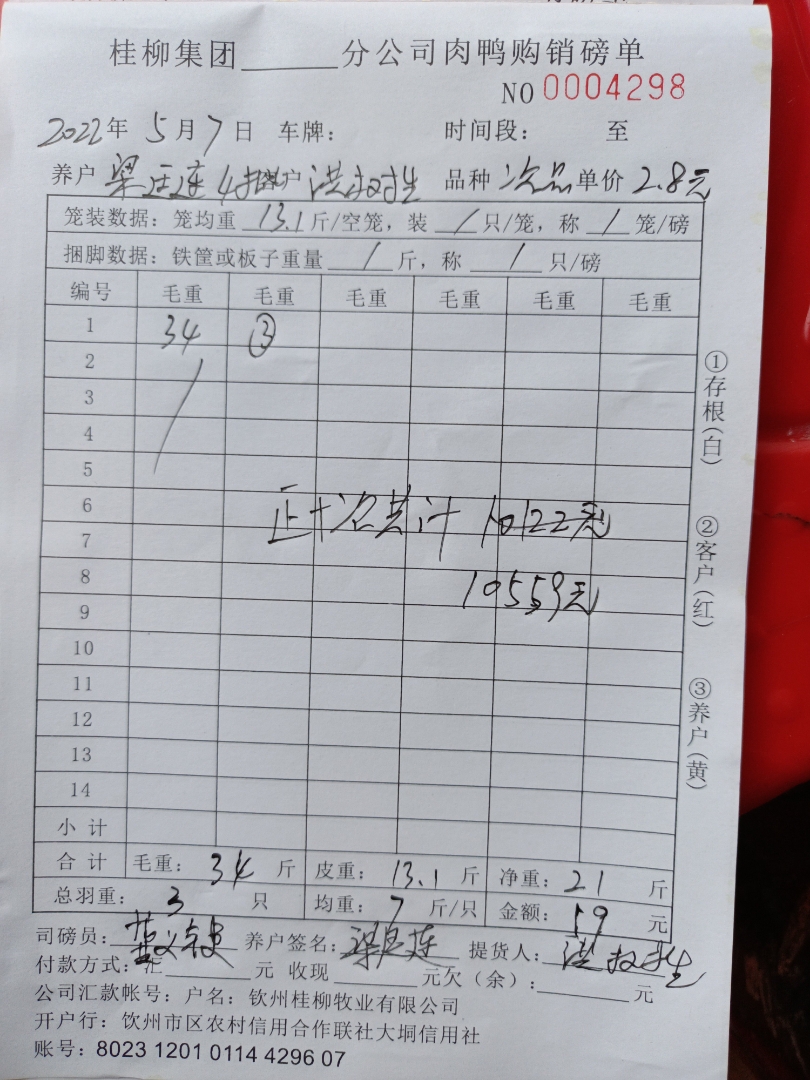 桂柳集团______分公司肉鸭购销磅单
NO 0004298
2022年 5月7日 车牌： 时间段： 至
养户 梁 连 4 户 洪 生 品种 次品 单价 2.8元
笼装数据：笼均重 13.1 斤/空笼，装 / 只/笼，称 / 笼/磅
捆脚数据：铁筐或板子重量 / 斤，称 / 只/磅
编号 毛重 毛重 毛重 毛重 毛重 毛重
1 34 ③
2
3
4
5
6
正+次共计 10122元
7
8
10559元
9
10
11
12
13
14
小计
合计 毛重： 34 斤 皮重： 13.1 斤 净重： 21 斤
总羽重： 3 只 均重： 7 斤/只 金额： 59 元
司磅员： 养户签名：梁 连 提货人：洪 生
付款方式：汇______元 收现______元欠（余）：______元
公司汇款帐号：户名：钦州桂柳牧业有限公司
开户行：钦州市区农村信用合作联社大垌信用社
账号：8023 1201 0114 4296 07
①存根(白)
②客户(红)
③养户(黄)